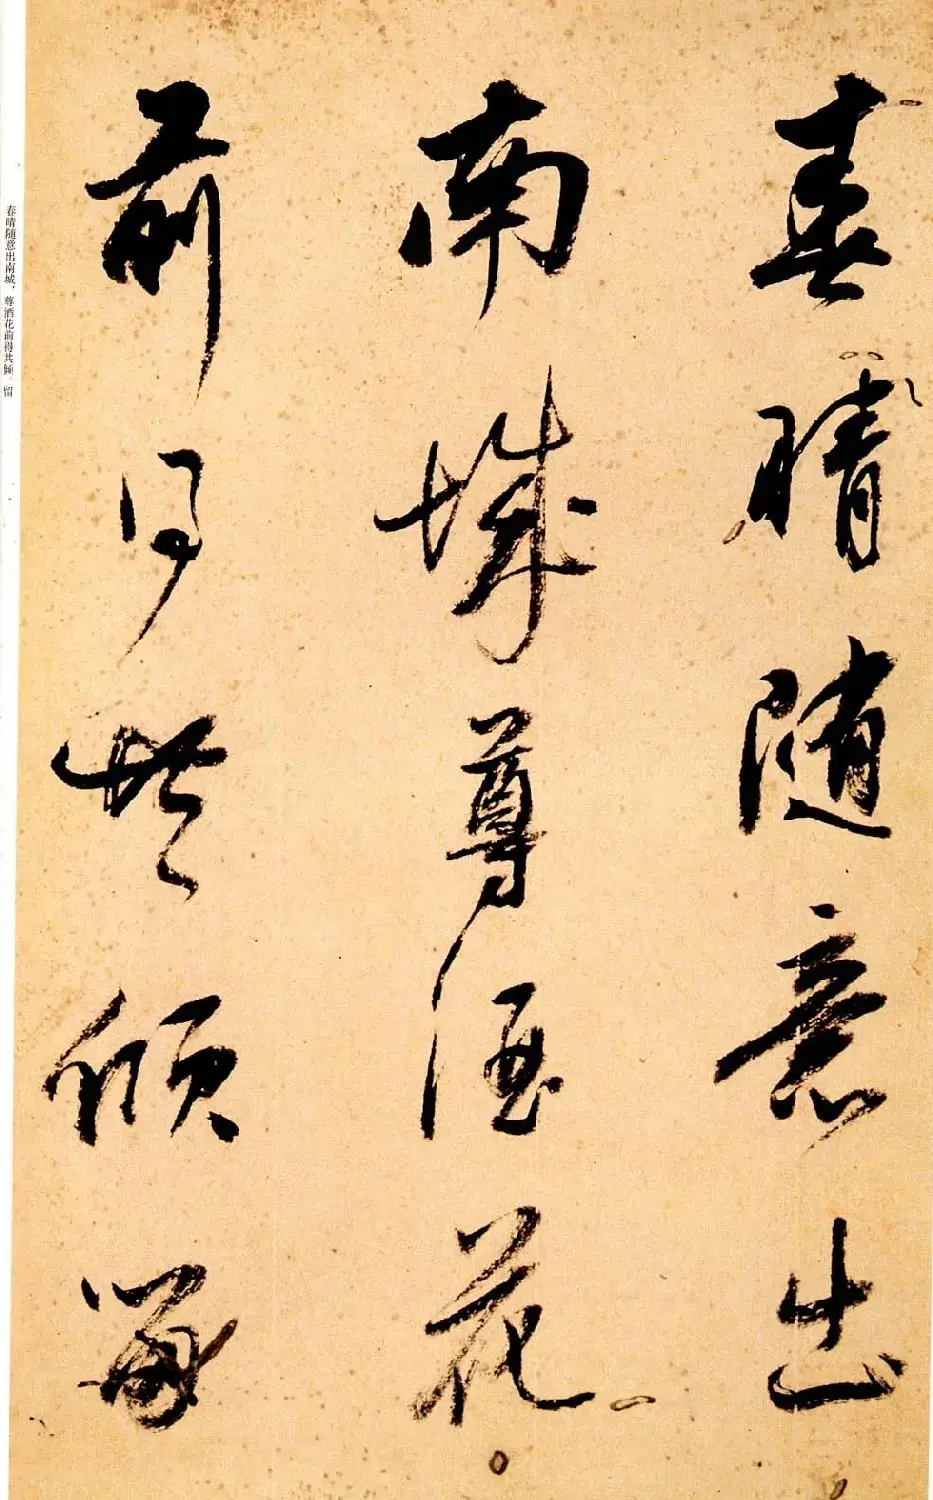 春晴随意出
南城尊酒花
前得共倾留
春晴随意出南城，尊酒花前得共倾。留